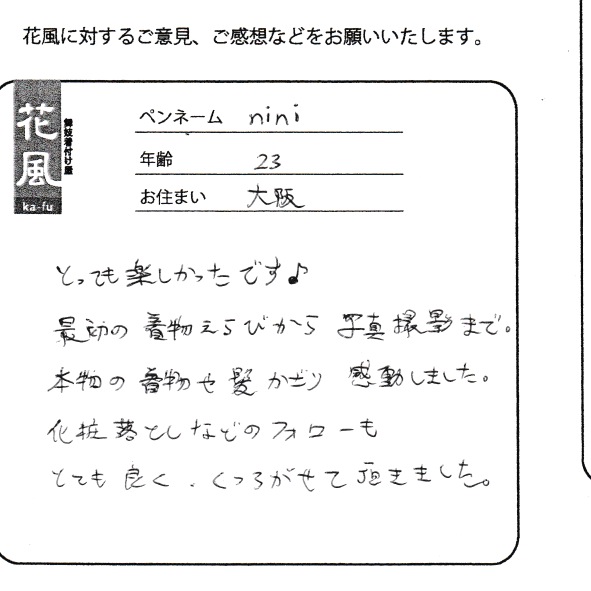 花風に対するご意見、ご感想などをお願いいたします。
花風
舞妓着付け屋
ka-fu
ペンネーム nini
年齢 23
お住まい 大阪
とっても楽しかったです♪
最初の着物えらびから写真撮影まで。
本物の着物や髪かざり感動しました。
化粧落としなどのフォローも
とても良く、くつろがせて頂きました。